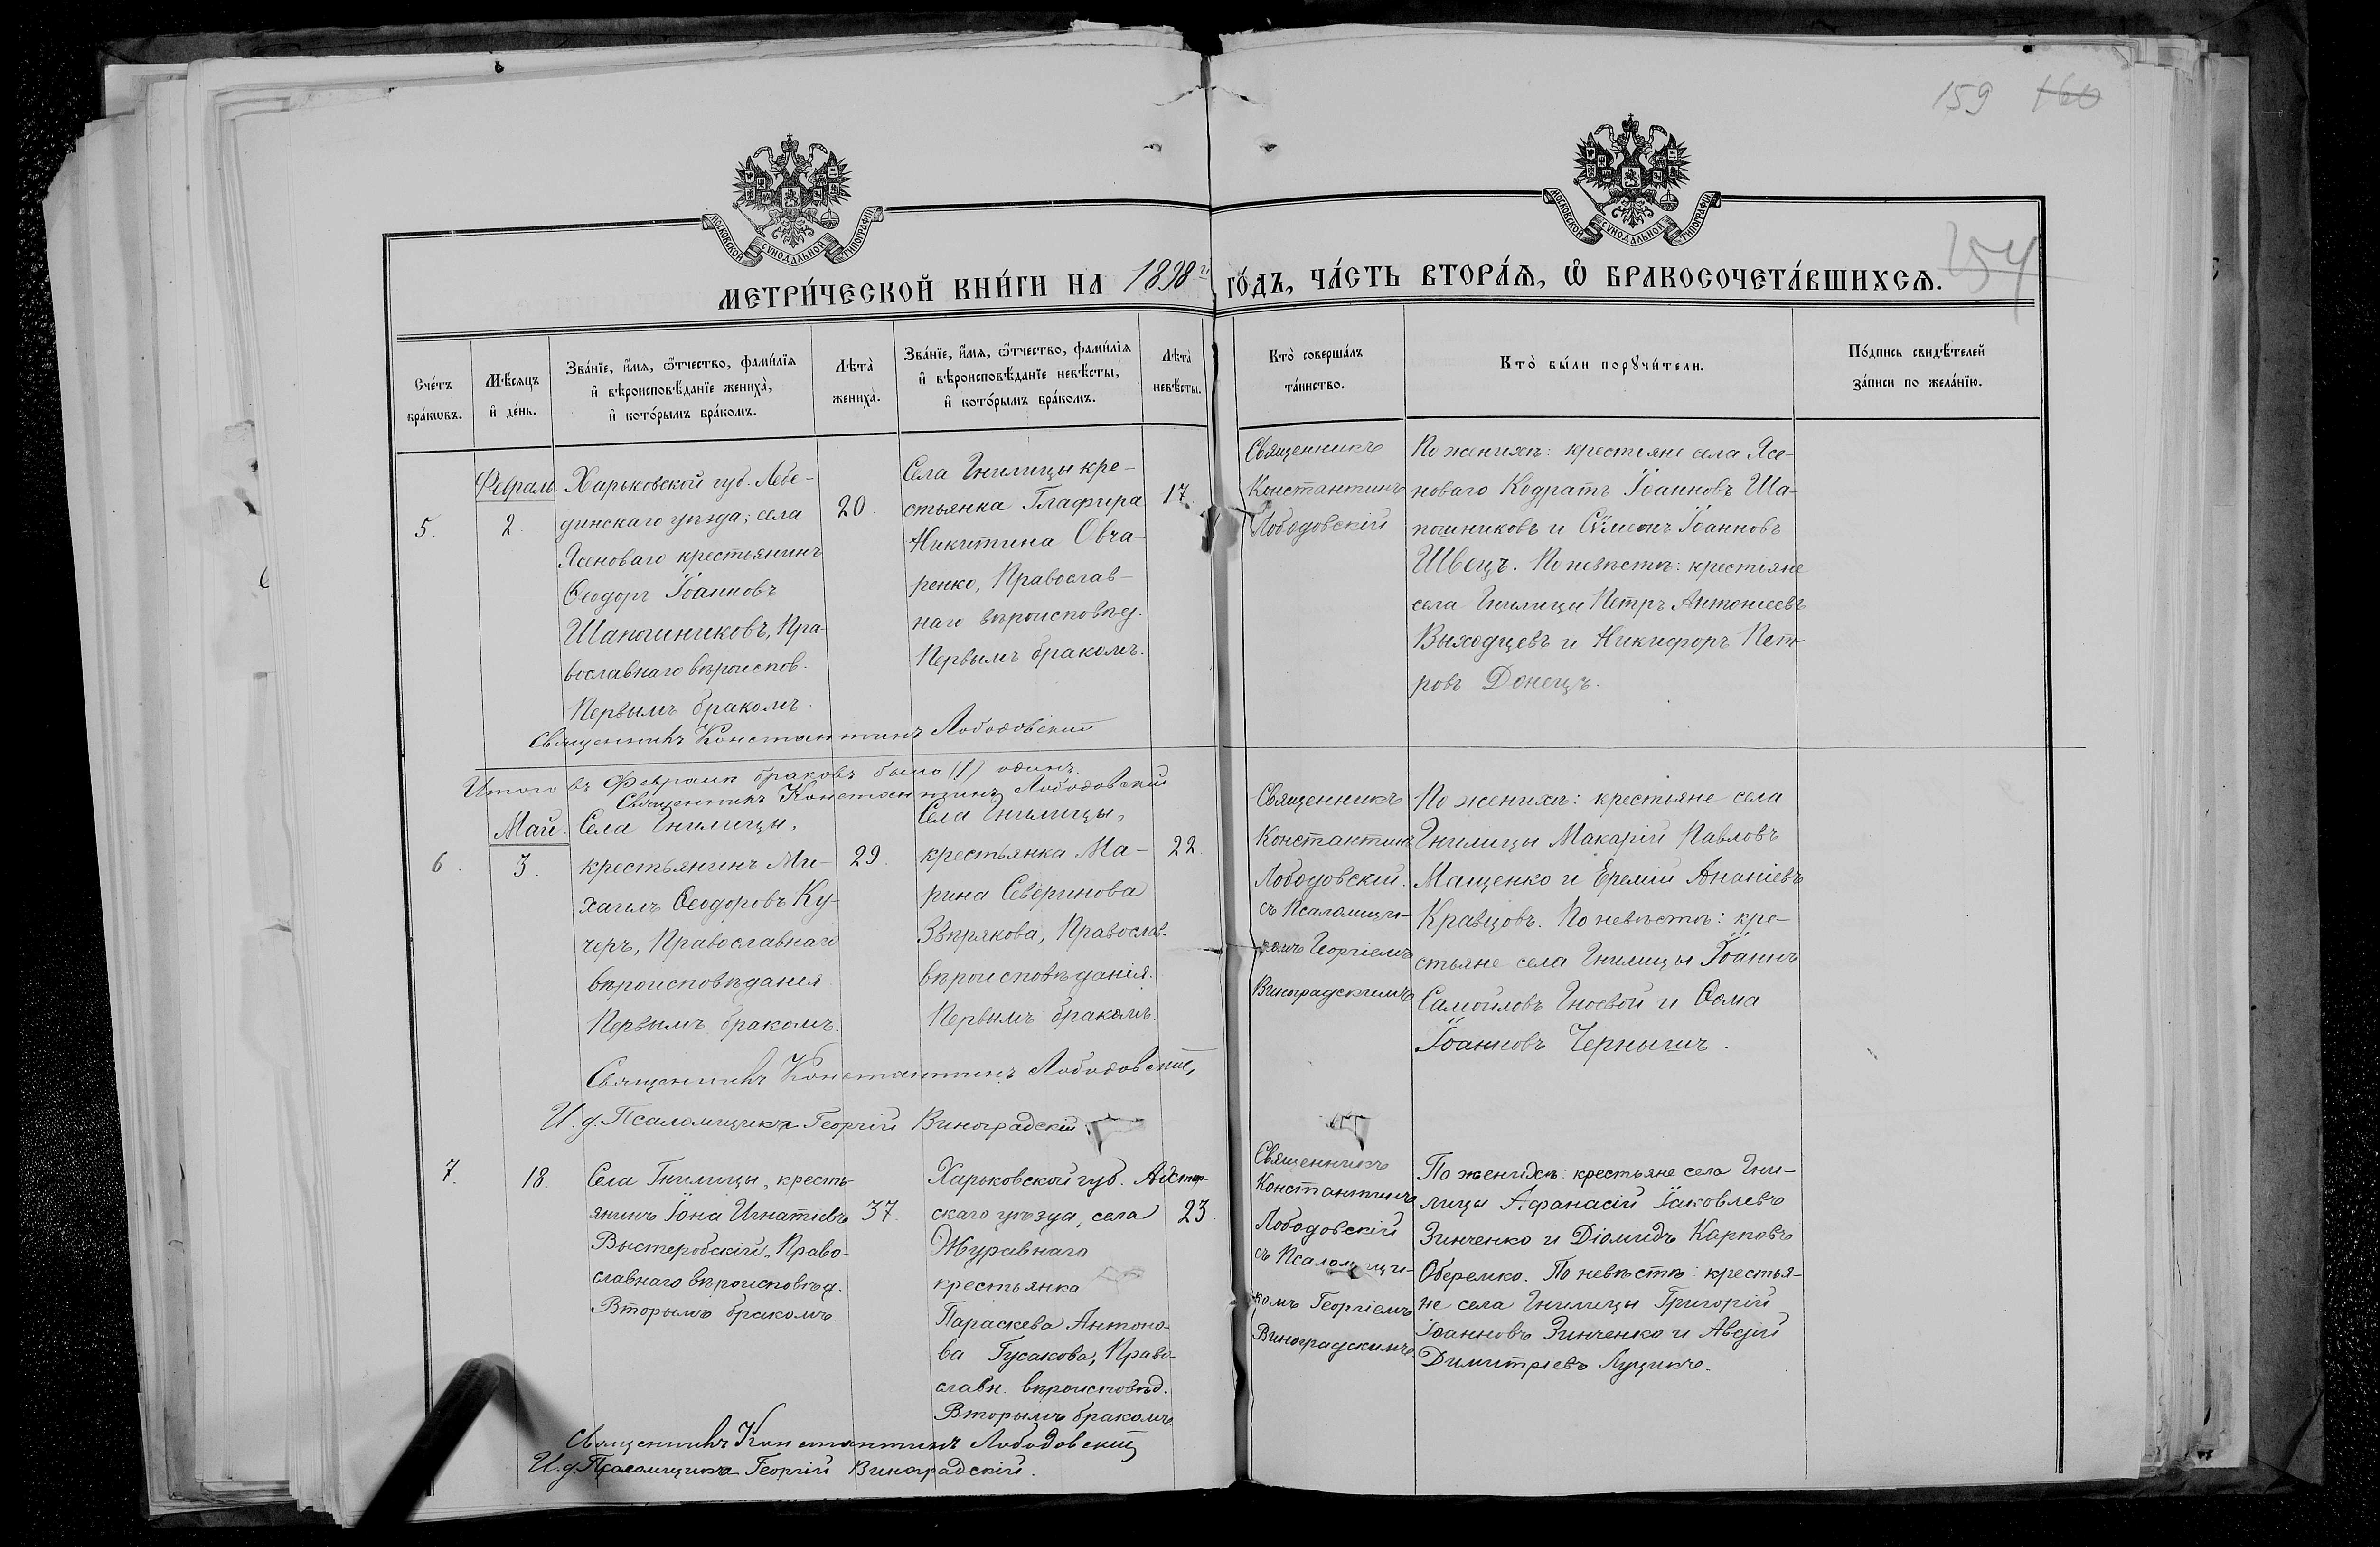 159 160
154
МОСКОВСКОЙ СѴНОДАЛЬНОЙ ТИПОГРАФІИ
МОСКОВСКОЙ СѴНОДАЛЬНОЙ ТИПОГРАФІИ
МЕТРИ́ЧЕСКОЙ КНИ́ГИ НА 1898 й ГО́ДЪ, ЧА́СТЬ ВТОРА́Ѧ, Ѽ БРАКОСОЧЕТА́ВШИХСѦ.
Сче́тъ
бра́кѡвъ.
Мѣ́сяцъ
и҆ де́нь.
Зва́нїе, и҆́мѧ, ѻ҆́тчество, фами́лїѧ
и҆ вѣроисповѣ́данїе жениха̀,
и҆ кото́рымъ бра́комъ.
Лѣта̀
жениха̀.
Зва́нїе, и҆́мѧ, ѻ҆́тчество, фами́лїѧ
и҆ вѣроисповѣ́данїе невѣ́сты,
и҆ кото́рымъ бра́комъ.
Лѣта̀
невѣ́сты.
Кто̀ соверша́лъ
та́инство.
Кто̀ бы́ли порꙋчи́тели.
По́дпись свидѣ́телей
за́писи по жела́нїю.
5.
Февраль
2.
Харьковской губ. Лебе-
динскаго уѣзда, села
Ясеноваго крестьянинъ
Ѳеодоръ Іоанновъ
Шапошниковъ, Пра-
вославнаго вѣроиспов.
Первымъ бракомъ.
20.
Села Гнилицы кре-
стьянка Глафира
Никитина Овча-
ренко, Православ-
наго вѣроисповѣд.
Первымъ бракомъ.
17.
Священникъ
Константинъ
Лободовскій
По женихѣ: крестьяне села Ясе-
новаго Кодратъ Іоанновъ Ша-
пошниковъ и Сѵмеонъ Іоанновъ
Швецъ. По невѣстѣ: крестьяне
села Гнилицы Петръ Антоніевъ
Выходцевъ и Никифоръ Пет-
ровъ Донецъ.
Священникъ Константинъ Лободовскій
Итого въ Февралѣ браковъ было (1) одинъ.
Священникъ Константинъ Лободовскій
6.
Май.
3.
Села Гнилицы,
крестьянинъ Ми-
хаилъ Ѳеодоровъ Ку-
черъ, Православнаго
вѣроисповѣданія.
Первымъ бракомъ.
29.
Села Гнилицы,
крестьянка Ма-
рина Северинова
Звѣрякова, Православ.
вѣроисповѣданія.
Первымъ бракомъ.
22.
Священникъ
Константинъ
Лободовскій.
съ Псаломщи-
комъ Георгіемъ
Виноградскимъ
По женихѣ: крестьяне села
Гнилицы Макарій Павловъ
Мащенко и Еремій Ананіевъ
Кравцовъ. По невѣстѣ: кре-
стьяне села Гнилицы Іоаннъ
Самойловъ Гноевой и Ѳома
Іоанновъ Чернышъ.
Священникъ Константинъ Лободовскій,
И. д. Псаломщика Георгій Виноградскій.
7.
18.
Села Гнилицы, кресть-
янинъ Іона Игнатіевъ
Выстеробскій, Право-
славнаго вѣроисповѣд.
Вторымъ бракомъ.
37.
Харьковской губ.
скаго уѣзда, села
Журавнаго
крестьянка
Параскева Антоно-
ва Гусакова, Право-
славн. вѣроисповѣд.
Вторымъ бракомъ
23.
Священникъ
Константинъ
Лободовскій
съ Псаломщи-
комъ Георгіемъ
Виноградскимъ
По женихѣ: крестьяне села Гни-
лицы Афанасій Іаковлевъ
Зинченко и Діомидъ Карповъ
Оберемко. По невѣстѣ: крестья-
не села Гнилицы Григорій
Іоанновъ Зинченко и Авдій
Димитріевъ Луцикъ.
Священникъ Константинъ Лободовскій
И. д. Псаломщика Георгій Виноградскій.